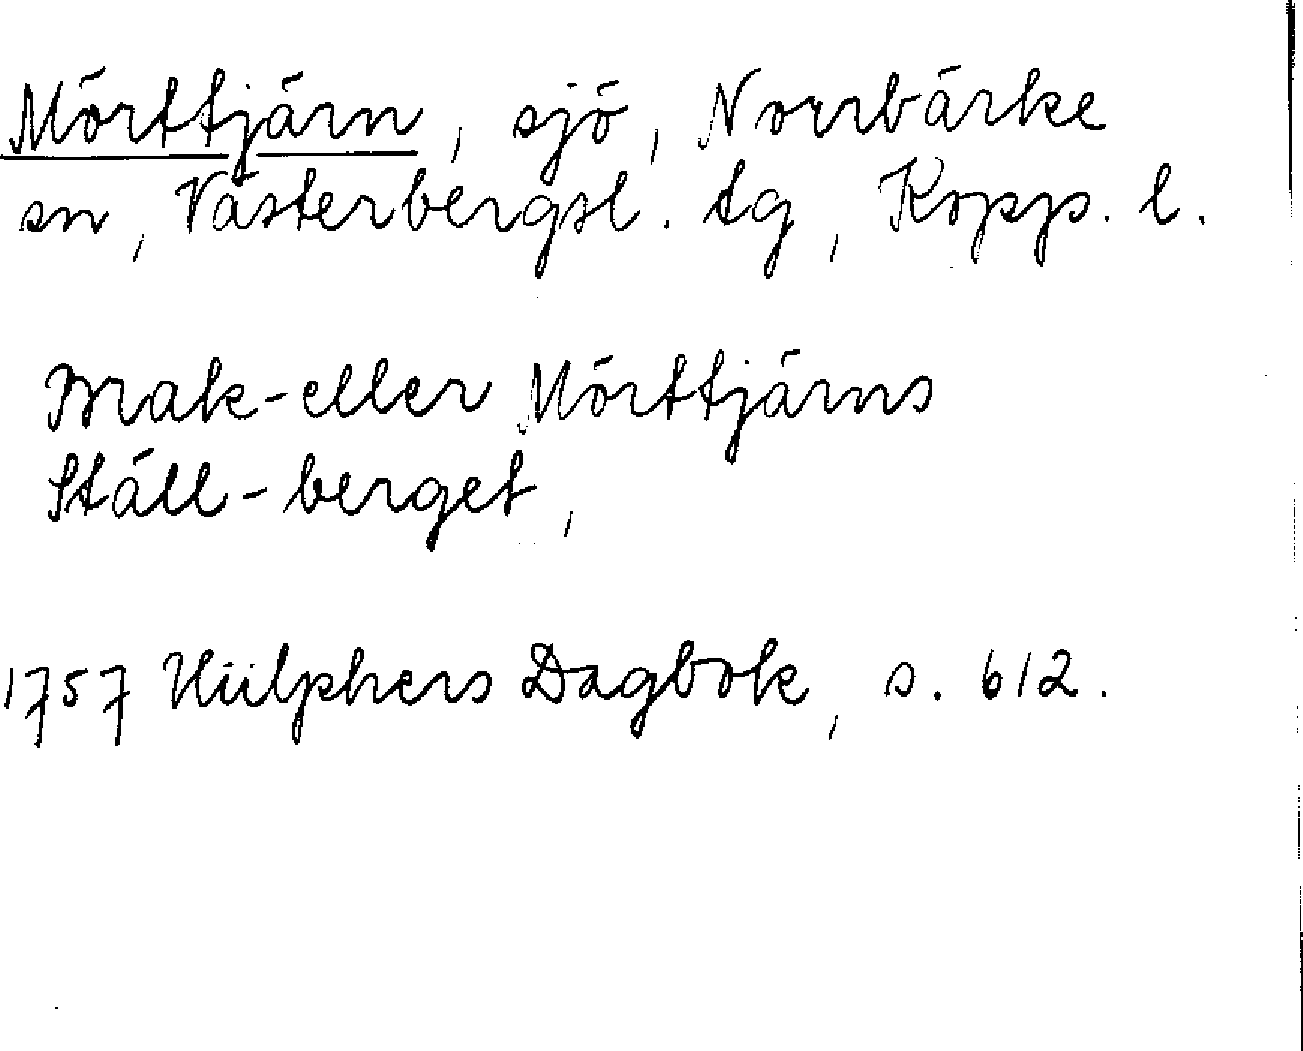 Mörttjärn, sjö, Norrbärke
sn, Västerbergsl. tg, Kopp. l.
Brak-eller Mörttjärns
Ställ-berget,
1757 Hülphers Dagbok, s. 612.